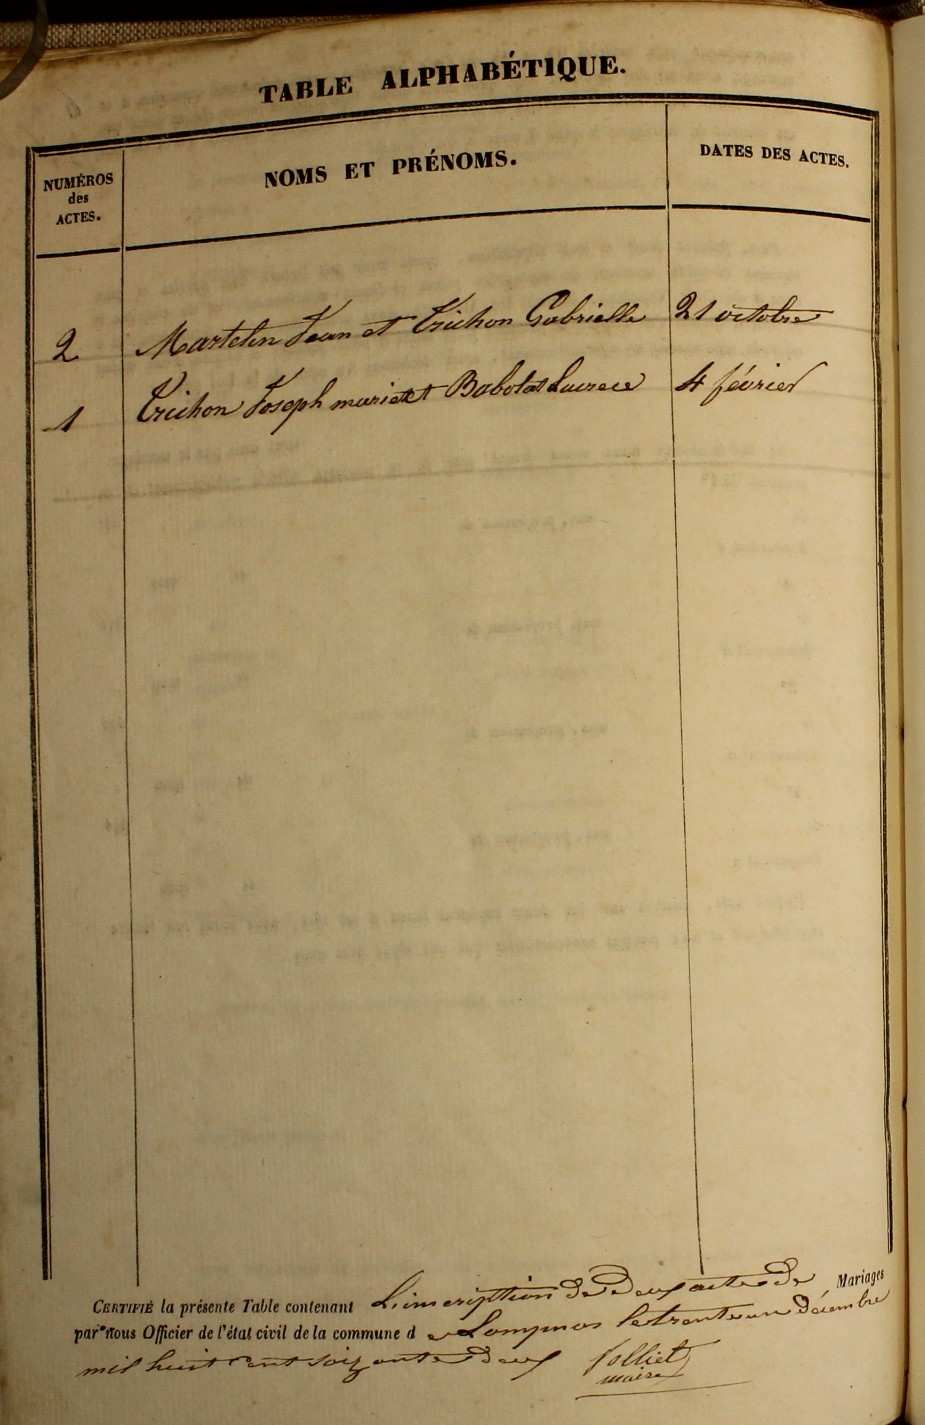 TABLE ALPHABÉTIQUE.
NUMÉROS
des
ACTES.
NOMS ET PRÉNOMS.
DATES DES ACTES.
2 Martelin Jean et Trichon Gabrielle 21 octobre
1 Trichon Joseph marie et Babolat Lucrece 4 février
CERTIFIÉ la présente Table contenant L'inscripttion de Deux actes de Mariages
par nous Officier de l'état civil de la commune d e Lompnas le trente un Décembre
mil huit cent soizante Deux
Folliet
maire